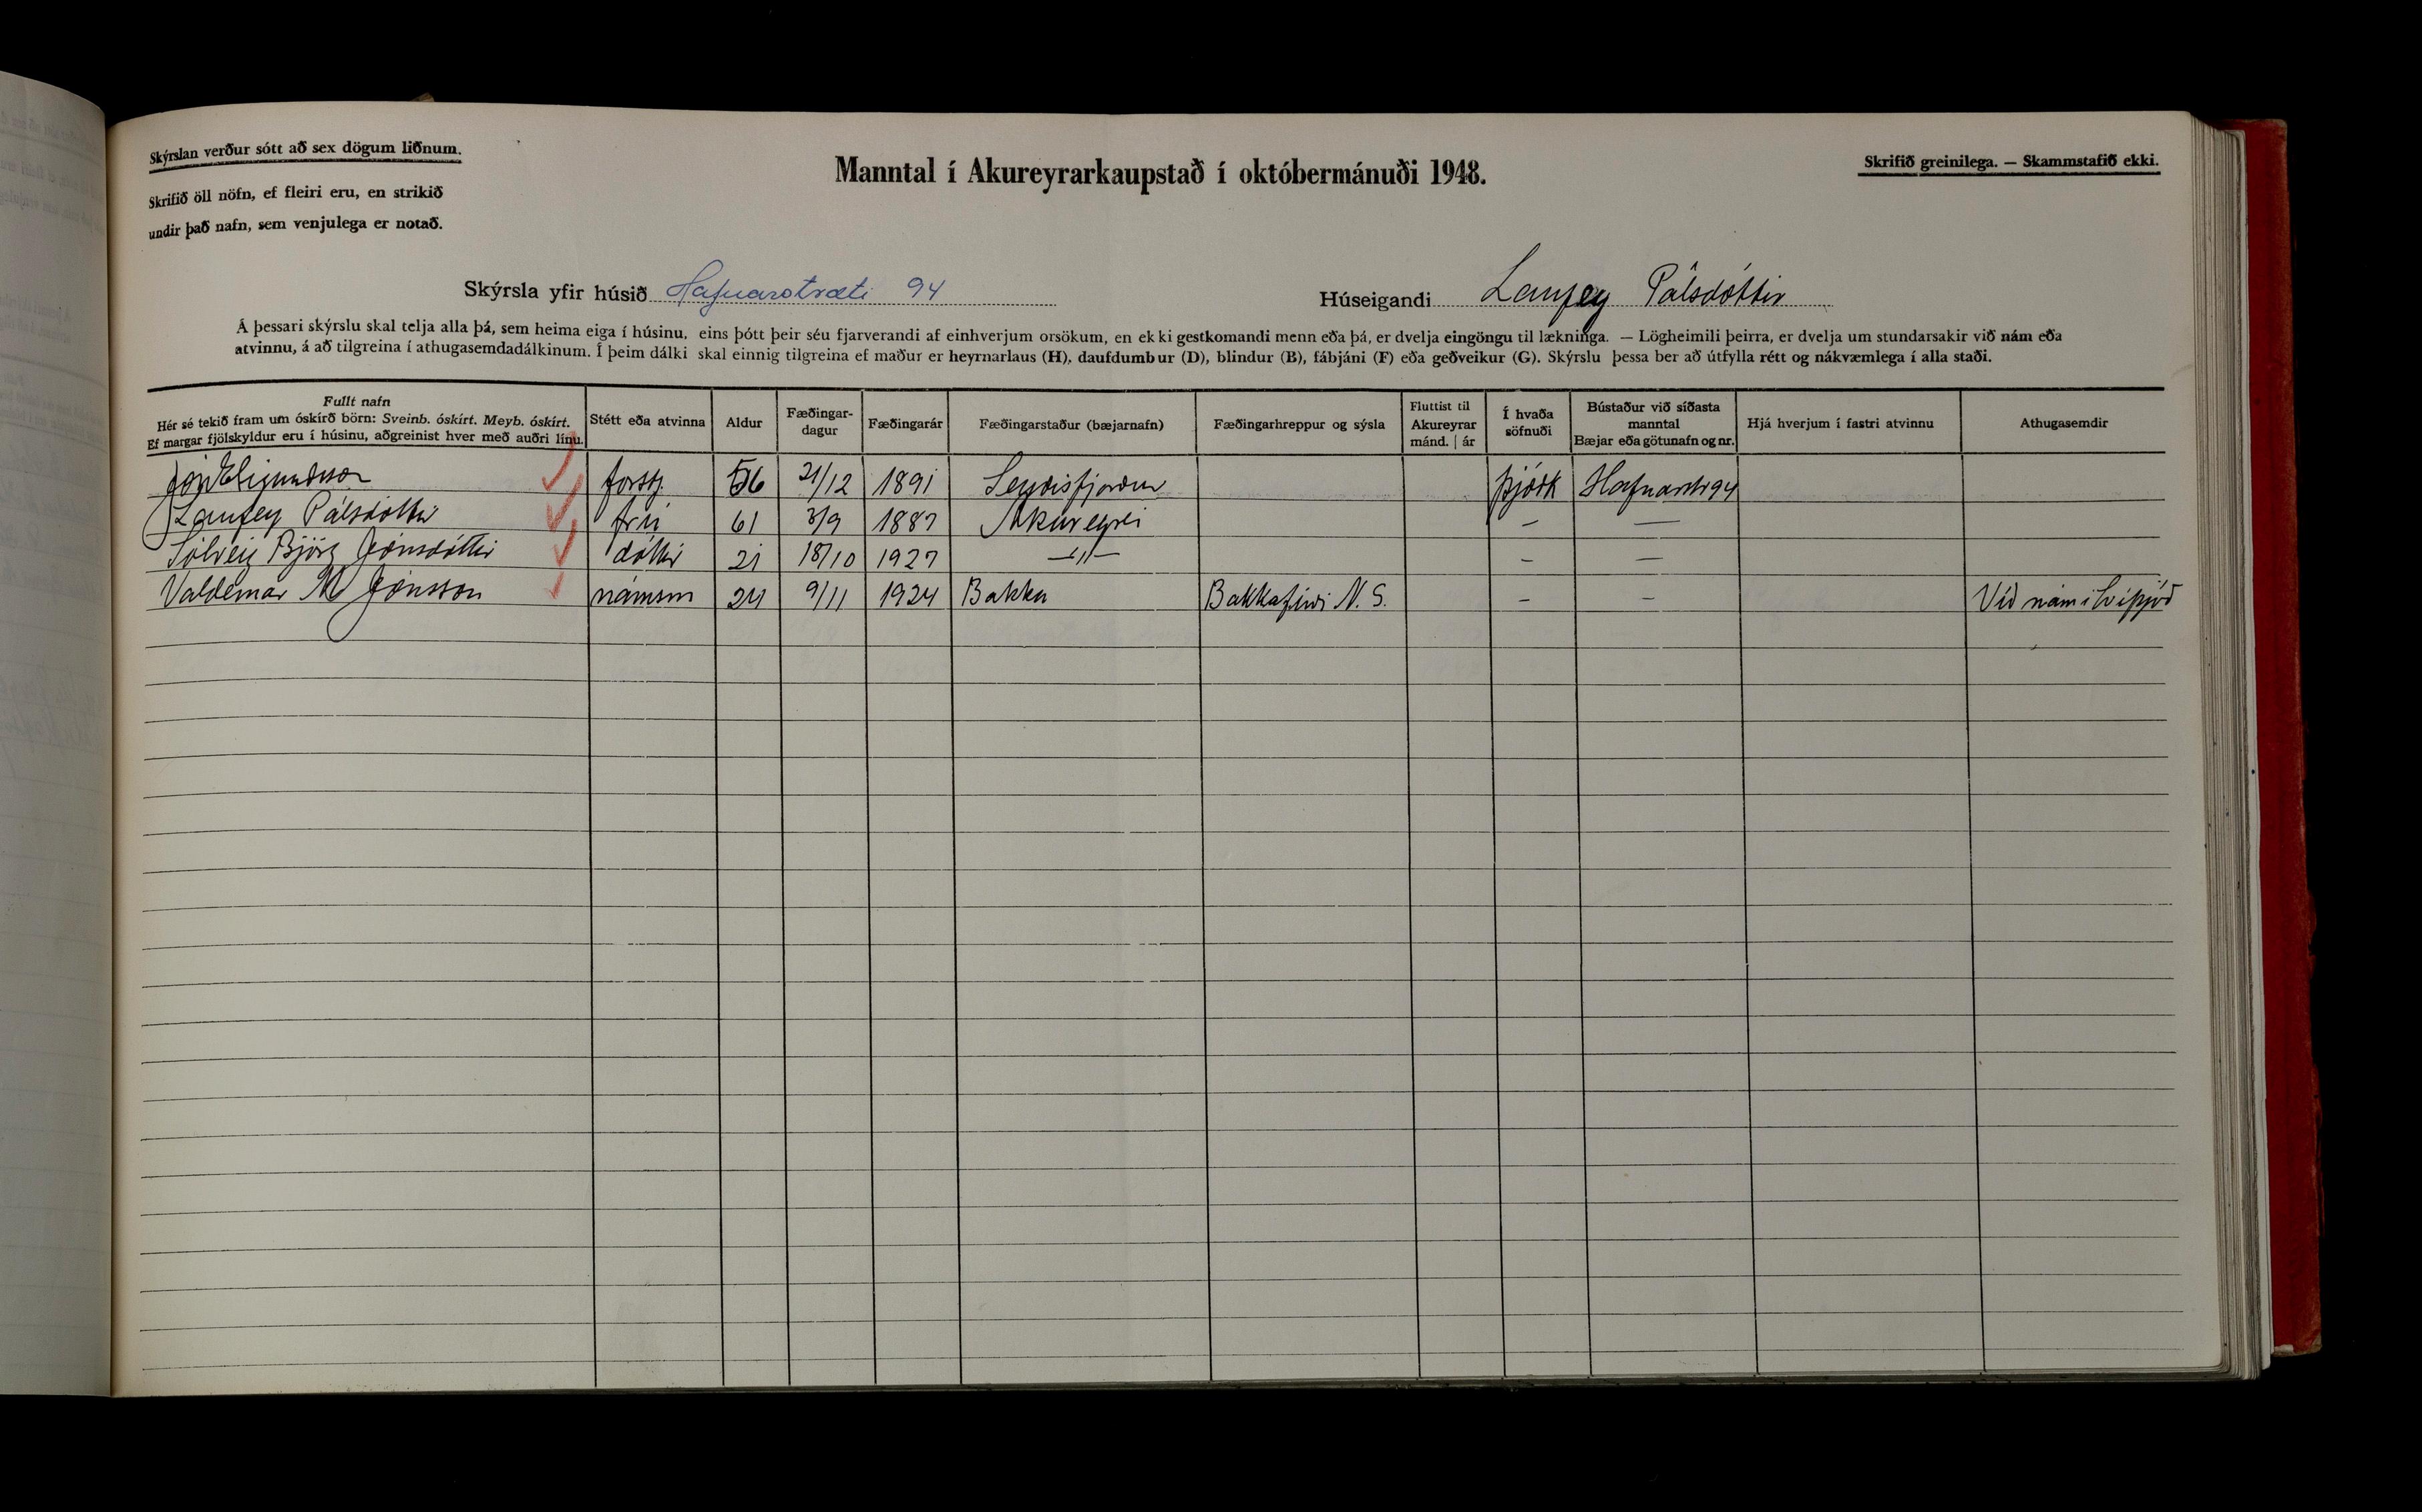 Skýrslan verður sótt að sex dögum liðnum.
Skrifið öll nöfn, ef fleiri eru, en strikið
undir það nafn, sem venjulega er notað.
Manntal í Akureyrarkaupstað í októbermánuði 1948.
Skrifið greinilega. — Skammstafið ekki.
Skýrsla yfir húsið Hafnarstræti 94
Húseigandi Laufey Pálsdóttir
Á þessari skýrslu skal telja alla þá, sem heima eiga í húsinu, eins þótt þeir séu fjarverandi af einhverjum orsökum, en ekki gestkomandi menn eða þá, er dvelja eingöngu til lækninga. — Lögheimili þeirra, er dvelja um stundarsakir við nám eða
atvinnu, á að tilgreina í athugasemdadálkinum. Í þeim dálki skal einnig tilgreina ef maður er heyrnarlaus (H), daufdumbur (D), blindur (B), fábjáni (F) eða geðveikur (G). Skýrslu þessa ber að útfylla rétt og nákvæmlega í alla staði.
Fullt nafn
Hér sé tekið fram um óskírð börn: Sveinb. óskírt. Meyb. óskírt.
Ef margar fjölskyldur eru í húsinu, aðgreinist hver með auðri línu.
Stétt eða atvinna
Aldur
Fæðingar-
dagur
Fæðingarár
Fæðingarstaður (bæjarnafn)
Fæðingarhreppur og sýsla
Fluttist til
Akureyrar
mánd. | ár
Í hvaða
söfnuði
Bústaður við síðasta
manntal
Bæjar eða götunafn og nr.
Hjá hverjum í fastri atvinnu
Athugasemdir
Jón forstj. 56 21/12 1891 Seyðisfjörður þjóðk Hafnarstr 94
Laufey Pálsdóttir frú 61 3/9 1887 Akureyri — —
Sólveig Björg Jónsdóttir dóttir 21 18/10 1927 —〃— — —
Valdemar M Jónsson námsm 24 9/11 1924 Bakka Bakkafirði N. S. — — Við nám í Svíþjóð